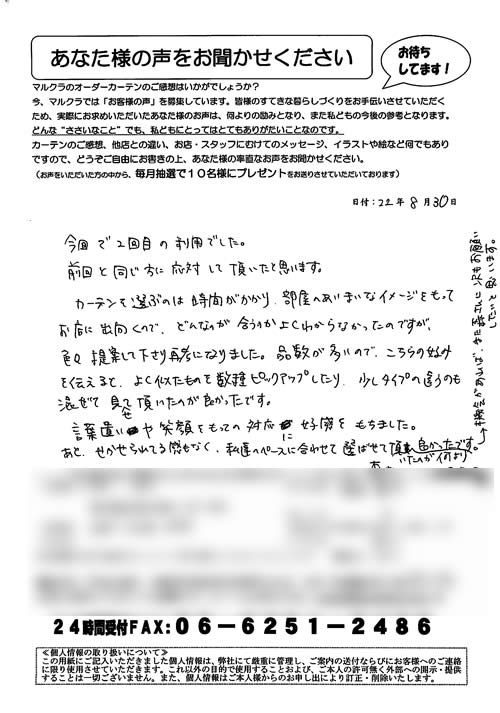 あなた様の声をお聞かせください
お待ち
してます！
マルクラのオーダーカーテンのご感想はいかがでしょうか？
今、マルクラでは「お客様の声」を募集しています。皆様のすてきな暮らしづくりをお手伝いさせていただく
ため、実際にお求めいただいたあなた様のお声は、何よりの励みとなり、また私どもの今後の参考となります。
どんな“ささいなこと”でも、私どもにとってはとてもありがたいことなのです。
カーテンのご感想、他店との違い、お店・スタッフにむけてのメッセージ、イラストや絵など何でもあり
ですので、どうぞご自由にお書きの上、あなた様の率直なお声をお聞かせください。
（お声をいただいた方の中から、毎月抽選で１０名様にプレゼントをお送りさせていただいております）
日付：22年 8月30日
今回で2回目の利用でした。
前回と同じ方に応対して頂いたと思います。
カーテンを選ぶのは時間がかかり、部屋へあいまいなイメージをもって
お店に出向くので、どんなのが合うかよくわからなかったのですが、
色々提案して下さり参考になりました。品数が多いので、こちらの好み
を伝えると、よく似たものを数種ピックアップしたり、少しタイプの違うのも
混ぜて見せて頂いたのが良かったです。
言葉遣いや笑顔をもっての対応に好感をもちました。
あと、せかせられてる感もなく、私達のペースに合わせて選ばせて頂
いたのが何より
良かったです。
２４時間受付ＦＡＸ：０６－６２５１－２４８６
≪個人情報の取り扱いについて≫
この用紙にご記入いただきました個人情報は、弊社にて厳重に管理し、ご案内の送付ならびにお客様へのご連絡
に限り使用させていただきます。これ以外の目的で使用することおよび、ご本人の許可無く外部への開示・提供
することは一切ございません。また、個人情報はご本人様からのお申し出により訂正・削除いたします。